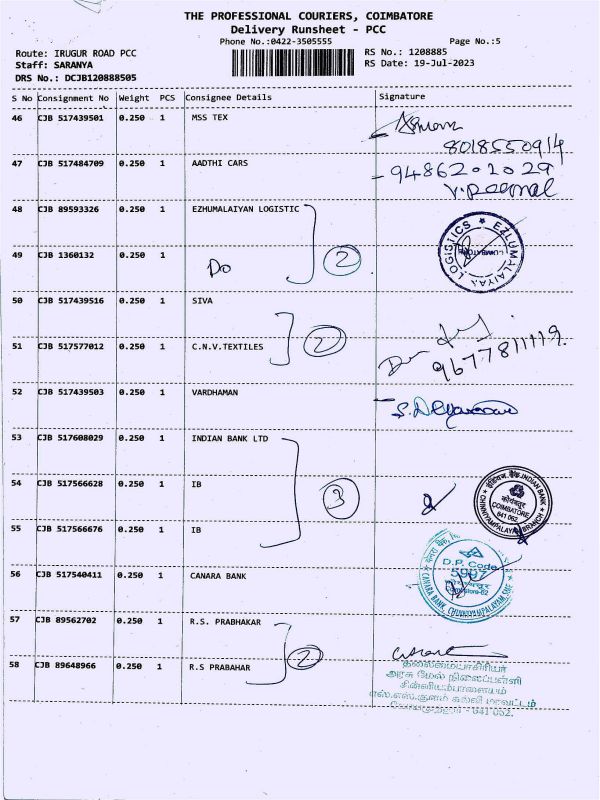 THE PROFESSIONAL COURIERS, COIMBATORE
Delivery Runsheet - PCC
Phone No.:0422-3505555
Page No.:5
Route: IRUGUR ROAD PCC
Staff: SARANYA
DRS No.: DCJB120888505
RS No.: 1208885
RS Date: 19-Jul-2023
S No Consignment No Weight PCS Consignee Details Signature
46 CJB 517439501 0.250 1 MSS TEX
8018550914
47 CJB 517484709 0.250 1 AADTHI CARS
9486202029
48 CJB 89593326 0.250 1 EZHUMALAIYAN LOGISTIC
EZLUMALAIYAN LOGISTICS
49 CJB 1360132 0.250 1 Do 2
50 CJB 517439516 0.250 1 SIVA
2
51 CJB 517577012 0.250 1 C.N.V.TEXTILES
9677811119.
52 CJB 517439503 0.250 1 VARDHAMAN
53 CJB 517608029 0.250 1 INDIAN BANK LTD
54 CJB 517566628 0.250 1 IB 3
इंडियन बैंक INDIAN BANK
कोयंबत्तूर
COIMBATORE
641 062
CHINNIYAMPALAYAM BRANCH
55 CJB 517566676 0.250 1 IB
56 CJB 517540411 0.250 1 CANARA BANK
D.P. Code
5997
CANARA BANK, CHINNIYAMPALAYAM, SME
57 CJB 89562702 0.250 1 R.S. PRABHAKAR
2
58 CJB 89648966 0.250 1 R.S PRABAHAR
தலைமையாசிரியர்
அரசு மேல் நிலைப்பள்ளி
சின்னியம்பாளையம்
எஸ்.எஸ்.குளம் கல்வி மாவட்டம்
641 052.